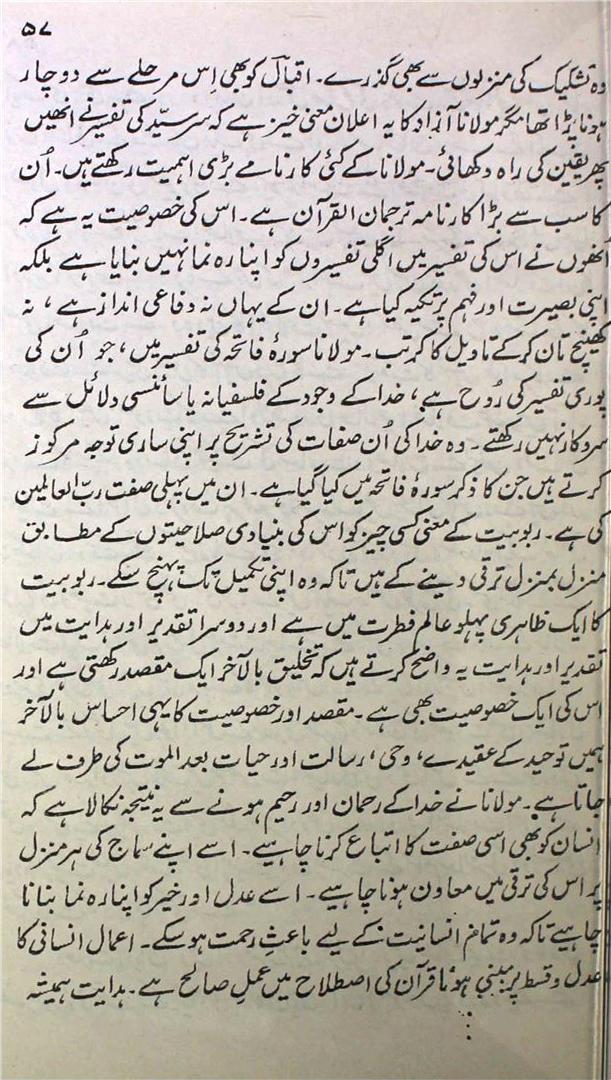 ۵۷
وہ تشکیک کی منزلوں سے بھی گذرے۔ اقبالؔ کو بھی اِس مرحلے سے دو چار
ہونا پڑا تھا مگر مولانا آزاد کا یہ اعلان معنی خیز ہے کہ سرسیّد کی تفسیر نے انھیں
پھر یقین کی راہ دکھائی۔ مولانا کے کئی کارنامے بڑی اہمیت رکھتے ہیں۔ اُن
کا سب سے بڑا کارنامہ ترجمان القرآن ہے۔ اس کی خصوصیت یہ ہے کہ
اُنھوں نے اس کی تفسیر میں اگلی تفسیروں کو اپنا رہ نما نہیں بنایا ہے بلکہ
اپنی بصیرت اور فہم پر تکیہ کیا ہے۔ ان کے یہاں نہ دفاعی انداز ہے، نہ
کھینچ تان کر کے تاویل کا کرتب۔ مولانا سورۂ فاتحہ کی تفسیر میں، جو اُن کی
پوری تفسیر کی رُوح ہے، خدا کے وجود کے فلسفیانہ یا سائنسی دلائل سے
سروکار نہیں رکھتے۔ وہ خدا کی اُن صفات کی تشریح پر اپنی ساری توجہ مرکوز
کرتے ہیں جن کا ذکر سورۂ فاتحہ میں کیا گیا ہے۔ ان میں پہلی صفت ربّ العالمین
کی ہے۔ ربوبیت کے معنی کسی چیز کو اس کی بنیادی صلاحیتوں کے مطابق
منزل بمنزل ترقی دینے کے ہیں تاکہ وہ اپنی تکمیل تک پہنچ سکے۔ ربوبیت
کا ایک ظاہری پہلو عالمِ فطرت میں ہے اور دوسرا تقدیر اور ہدایت میں
تقدیر اور ہدایت یہ واضح کرتے ہیں کہ تخلیق بالآخر ایک مقصد رکھتی ہے اور
اس کی ایک خصوصیت بھی ہے۔ مقصد اور خصوصیت کا یہی احساس بالآخر
ہمیں توحید کے عقیدے، وحی، رسالت اور حیات بعد الموت کی طرف لے
جاتا ہے۔ مولانا نے خدا کے رحمان اور رحیم ہونے سے یہ نتیجہ نکالا ہے کہ
انسان کو بھی اسی صفت کا اتباع کرنا چاہیے۔ اسے اپنے سماج کی ہر منزل
پر اس کی ترقی میں معاون ہونا چاہیے۔ اسے عدل اور خیر کو اپنا رہ نما بنانا
چاہیے تاکہ وہ تمام انسانیت کے لیے باعثِ رحمت ہو سکے۔ اعمال انسانی کا
عدل و قسط پر مبنی ہونا قرآن کی اصطلاح میں عملِ صالح ہے۔ ہدایت ہمیشہ